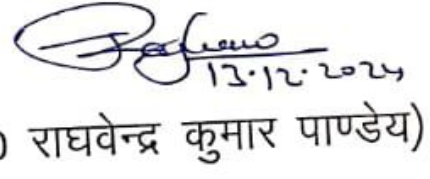 13.12.2024
) राघवेन्द्र कुमार पाण्डेय)